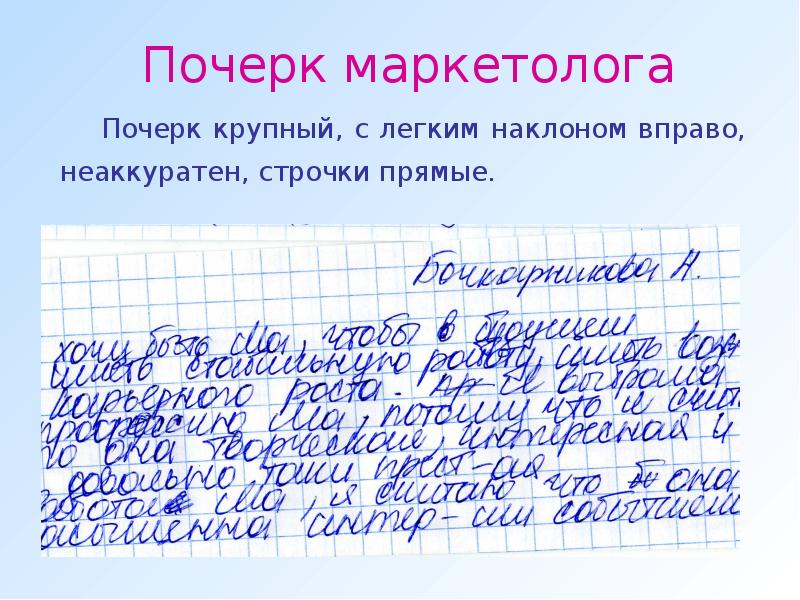 Почерк маркетолога
Почерк крупный, с легким наклоном вправо,
неаккуратен, строчки прямые.
Бочкарникова Н.
хочу быть Ма, чтобы в будущем
иметь стабильную работу, иметь воз
карьерного роста. Я выбрала
профессию Ма, потому что я счит
то она творческая, интересная и
довольно таки прест-ая
работая Ма, я считаю что она
насыщенна интер-ми событиями